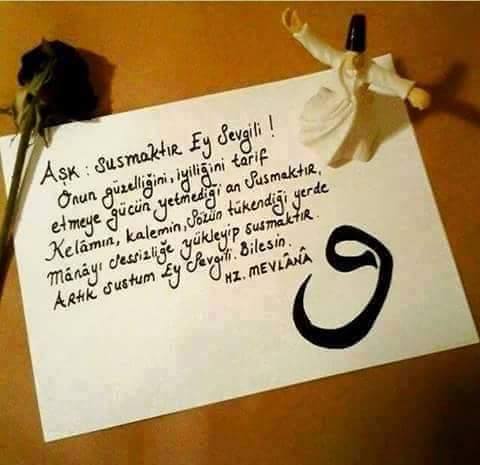 Aşk : Susmaktır Ey Sevgili !
Onun güzelliğini, iyiliğini tarif
etmeye gücün yetmediği an Susmaktır,
Kelâmın, kalemin, Sözün tükendiği yerde
Mânâyı sessizliğe yükleyip susmaktır.
Artık sustum Ey Sevgili. Bilesin.
HZ. MEVLÂNÂ
و